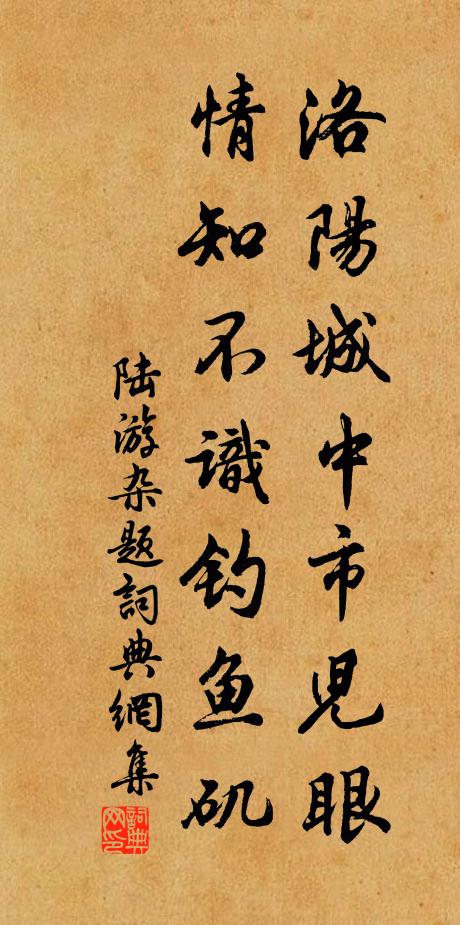 洛陽城中市児眼
情知不識钓鱼矶
陆游杂题詞典網集
詞典网印